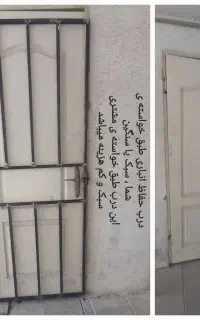 درب حفاظ انباری طبق خواسته ی
شما ، سبک یا سنگین
این درب طبق خواسته ی مشتری
سبک و کم هزینه میباشد